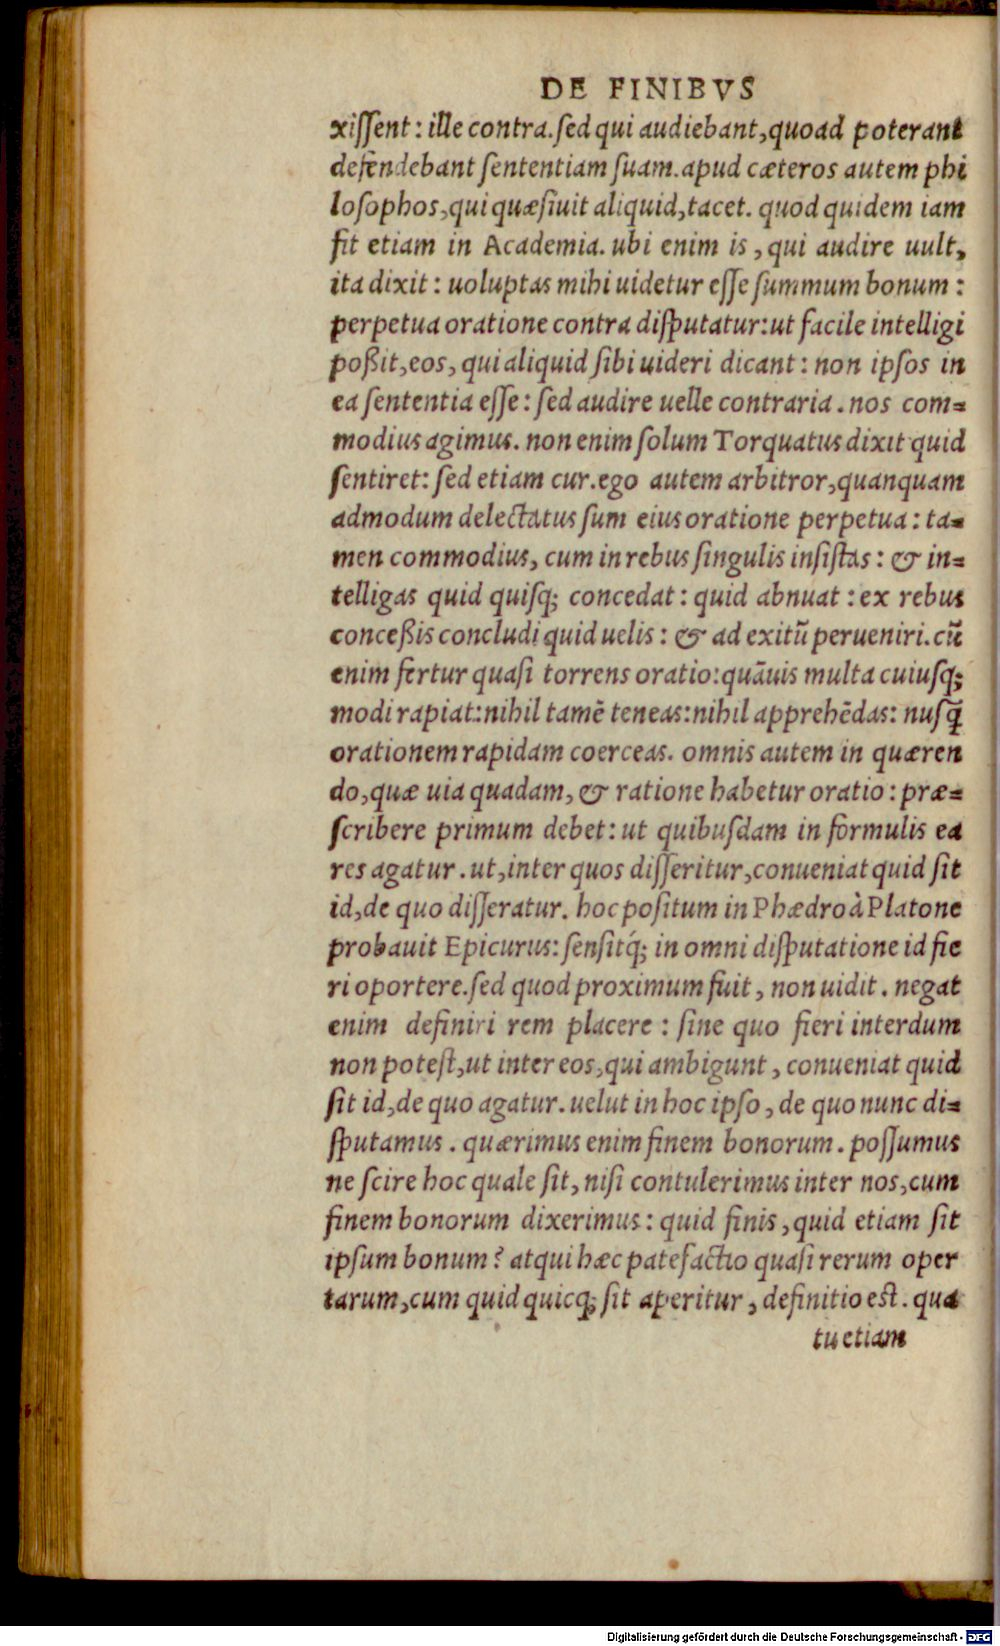 DE FINIBVS
xiſſent: ille contra. ſed qui audiebant, quoad poterant
defendebant ſententiam ſuam. apud cæteros autem phi
loſophos, qui quæſiuit aliquid, tacet. quod quidem iam
fit etiam in Academia. ubi enim is, qui audire uult,
ita dixit: uoluptas mihi uidetur eſſe ſummum bonum:
perpetua oratione contra diſputatur: ut facile intelligi
poßit, eos, qui aliquid ſibi uideri dicant: non ipſos in
ea ſententia eſſe: ſed audire uelle contraria. nos com=
modius agimus. non enim ſolum Torquatus dixit quid
ſentiret: ſed etiam cur. ego autem arbitror, quanquam
admodum delectatus ſum eius oratione perpetua: ta=
men commodius, cum in rebus ſingulis inſiſtas: & in=
telligas quid quiſq; concedat: quid abnuat: ex rebus
conceßis concludi quid uelis: & ad exitū perueniri. cū
enim fertur quaſi torrens oratio: quāuis multa cuiuſq;
modi rapiat: nihil tamē teneas: nihil apprehēdas: nuſq̄
orationem rapidam coerceas. omnis autem in quæren
do, quæ uia quadam, & ratione habetur oratio: præ=
ſcribere primum debet: ut quibuſdam in formulis ea
res agatur. ut, inter quos diſſeritur, conueniat quid ſit
id, de quo diſſeratur. hoc poſitum in Phædro à Platone
probauit Epicurus: ſenſitq́; in omni diſputatione id fie
ri oportere. ſed quod proximum fuit, non uidit. negat
enim definiri rem placere: ſine quo fieri interdum
non poteſt, ut inter eos, qui ambigunt, conueniat quid
ſit id, de quo agatur. uelut in hoc ipſo, de quo nunc di=
ſputamus. quærimus enim finem bonorum. poſſumus
ne ſcire hoc quale ſit, niſi contulerimus inter nos, cum
finem bonorum dixerimus: quid finis, quid etiam ſit
ipſum bonum? atqui hæc patefactio quaſi rerum oper
tarum, cum quid quicq; ſit aperitur, definitio eſt. qua
tu etiam
Digitalisierung gefördert durch die Deutsche Forschungsgemeinschaft - DFG